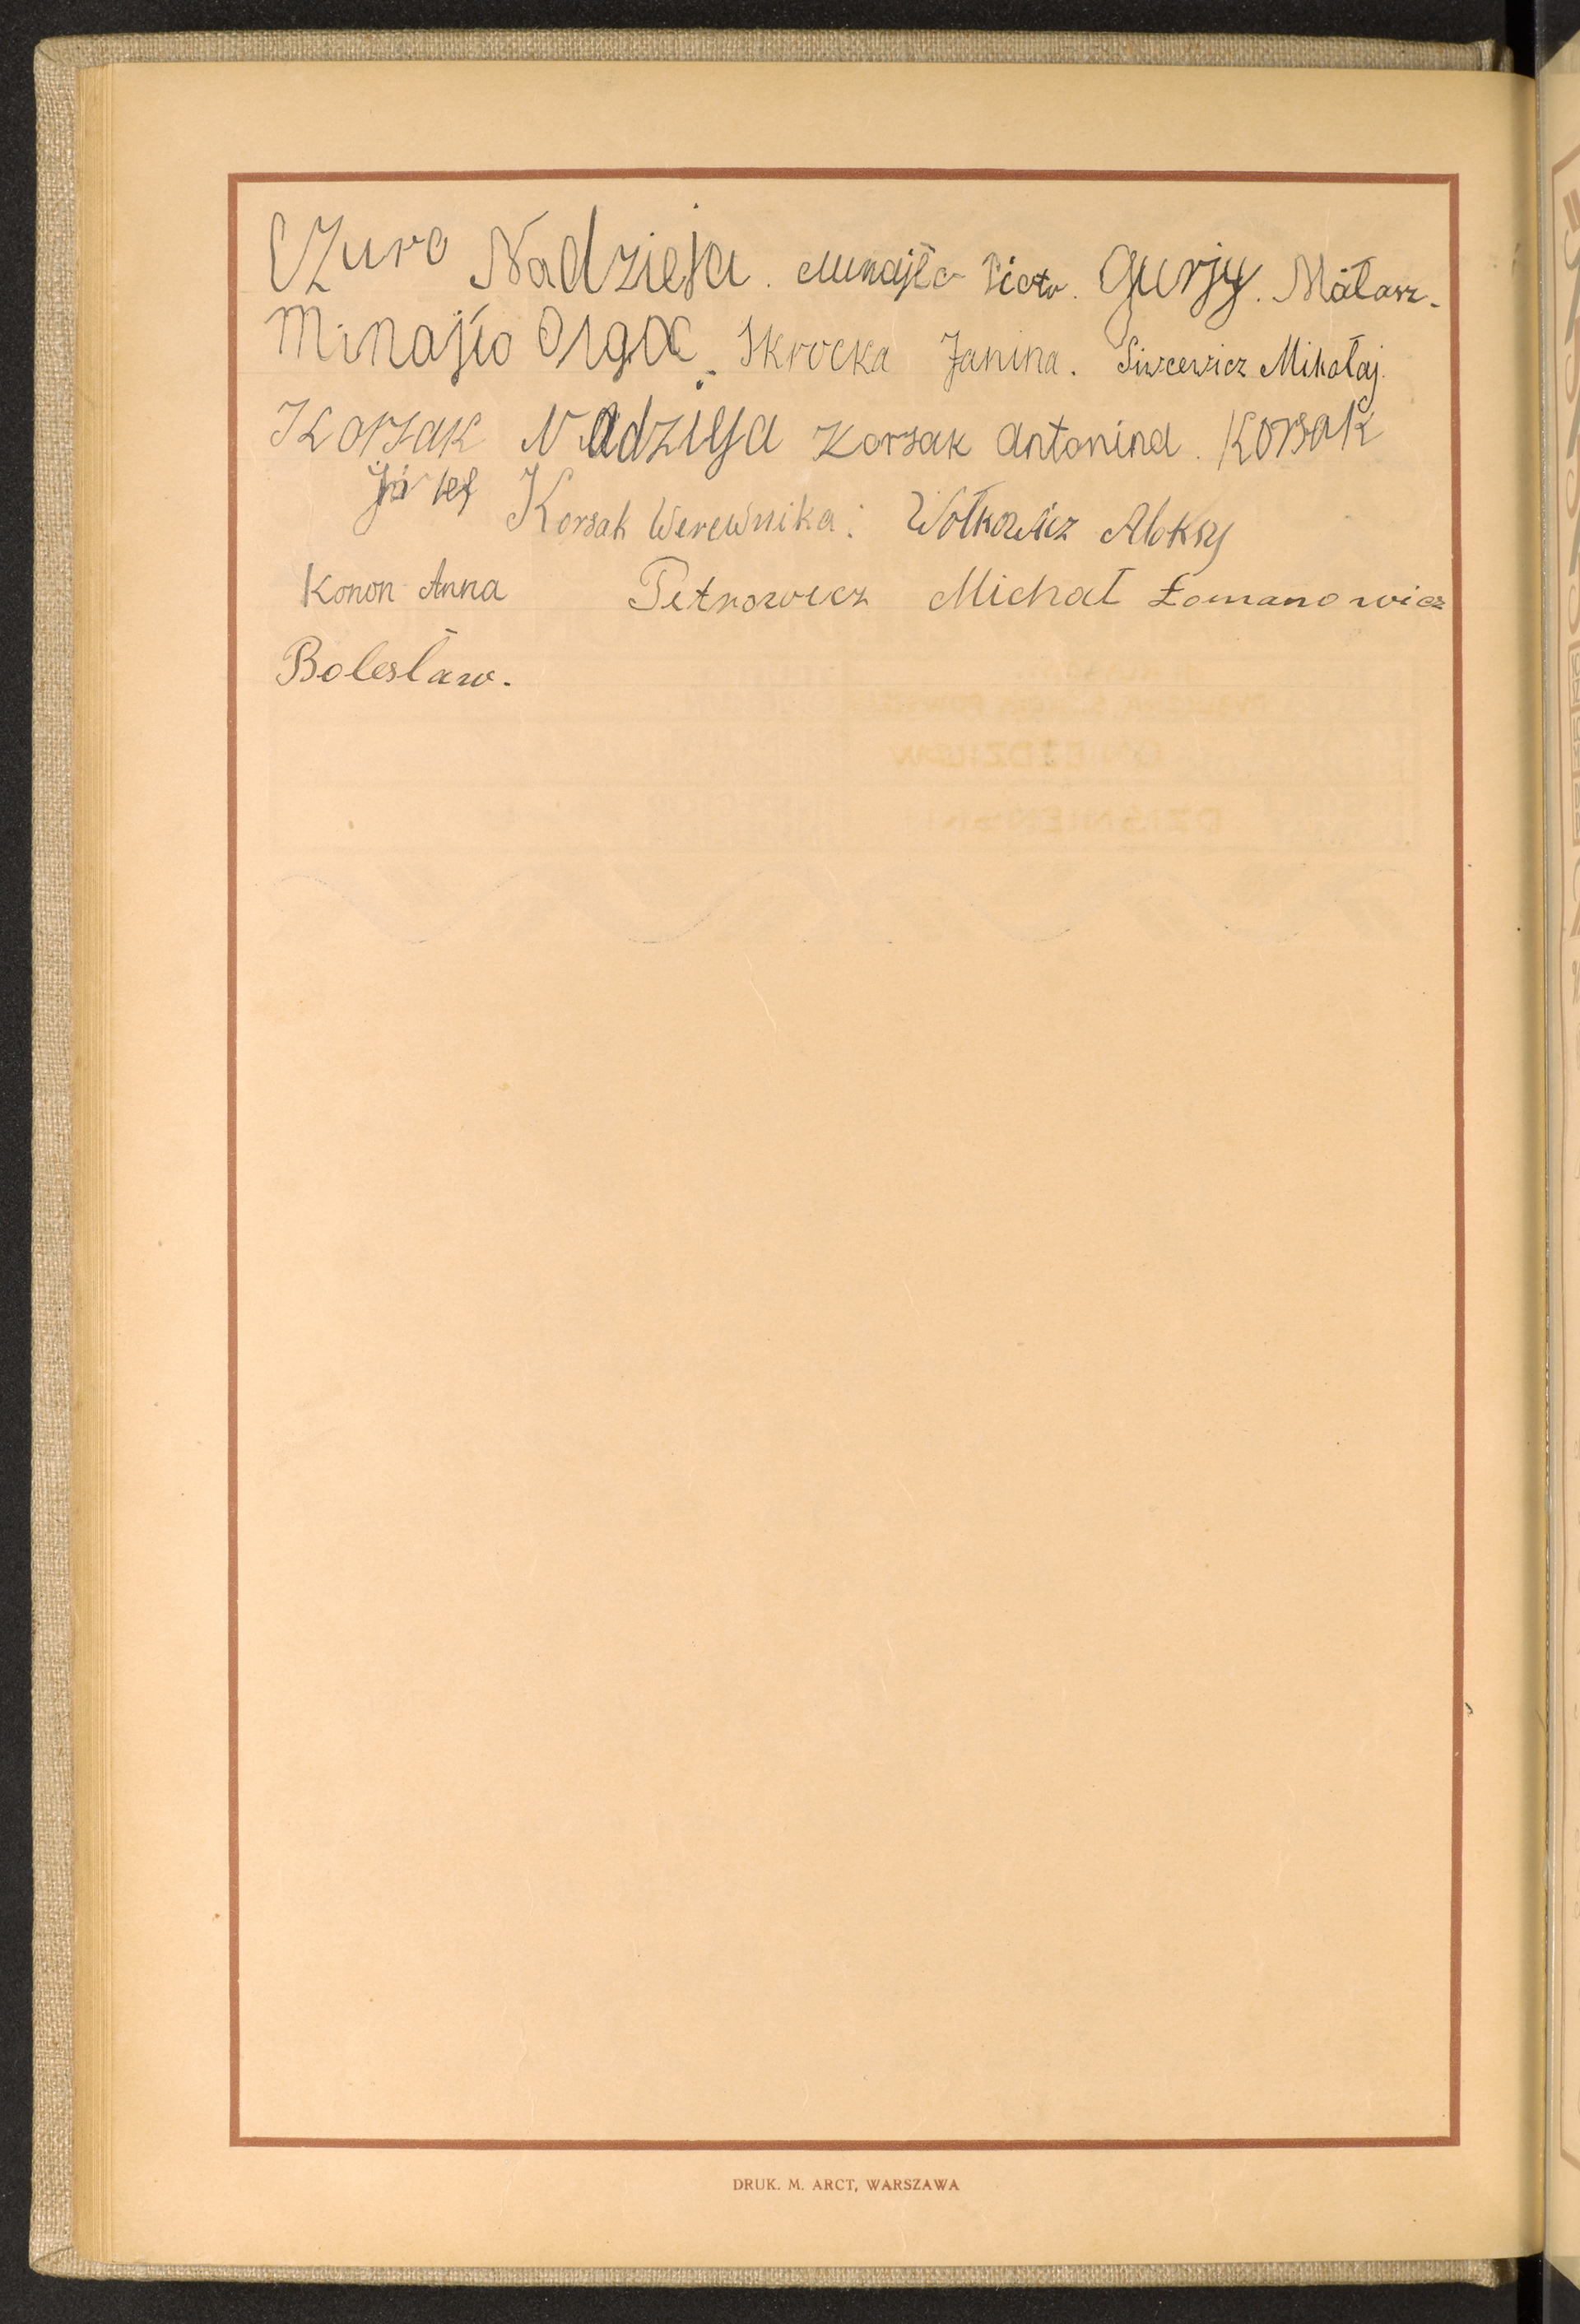 Czuro Nadzieja. Minajło Piotr. Gurjy. Małasz.
Minajło Olga. Skrocka Janina. Siwcewicz Mikołaj.
Korsak Nadzieja Korsak Antonina. Korsak
Józef Korsak Werewnika. Wołkowicz Aleksy
Konon Anna Petrowicz Michał Łomanowicz
Bolesław.
DRUK. M. ARCT, WARSZAWA